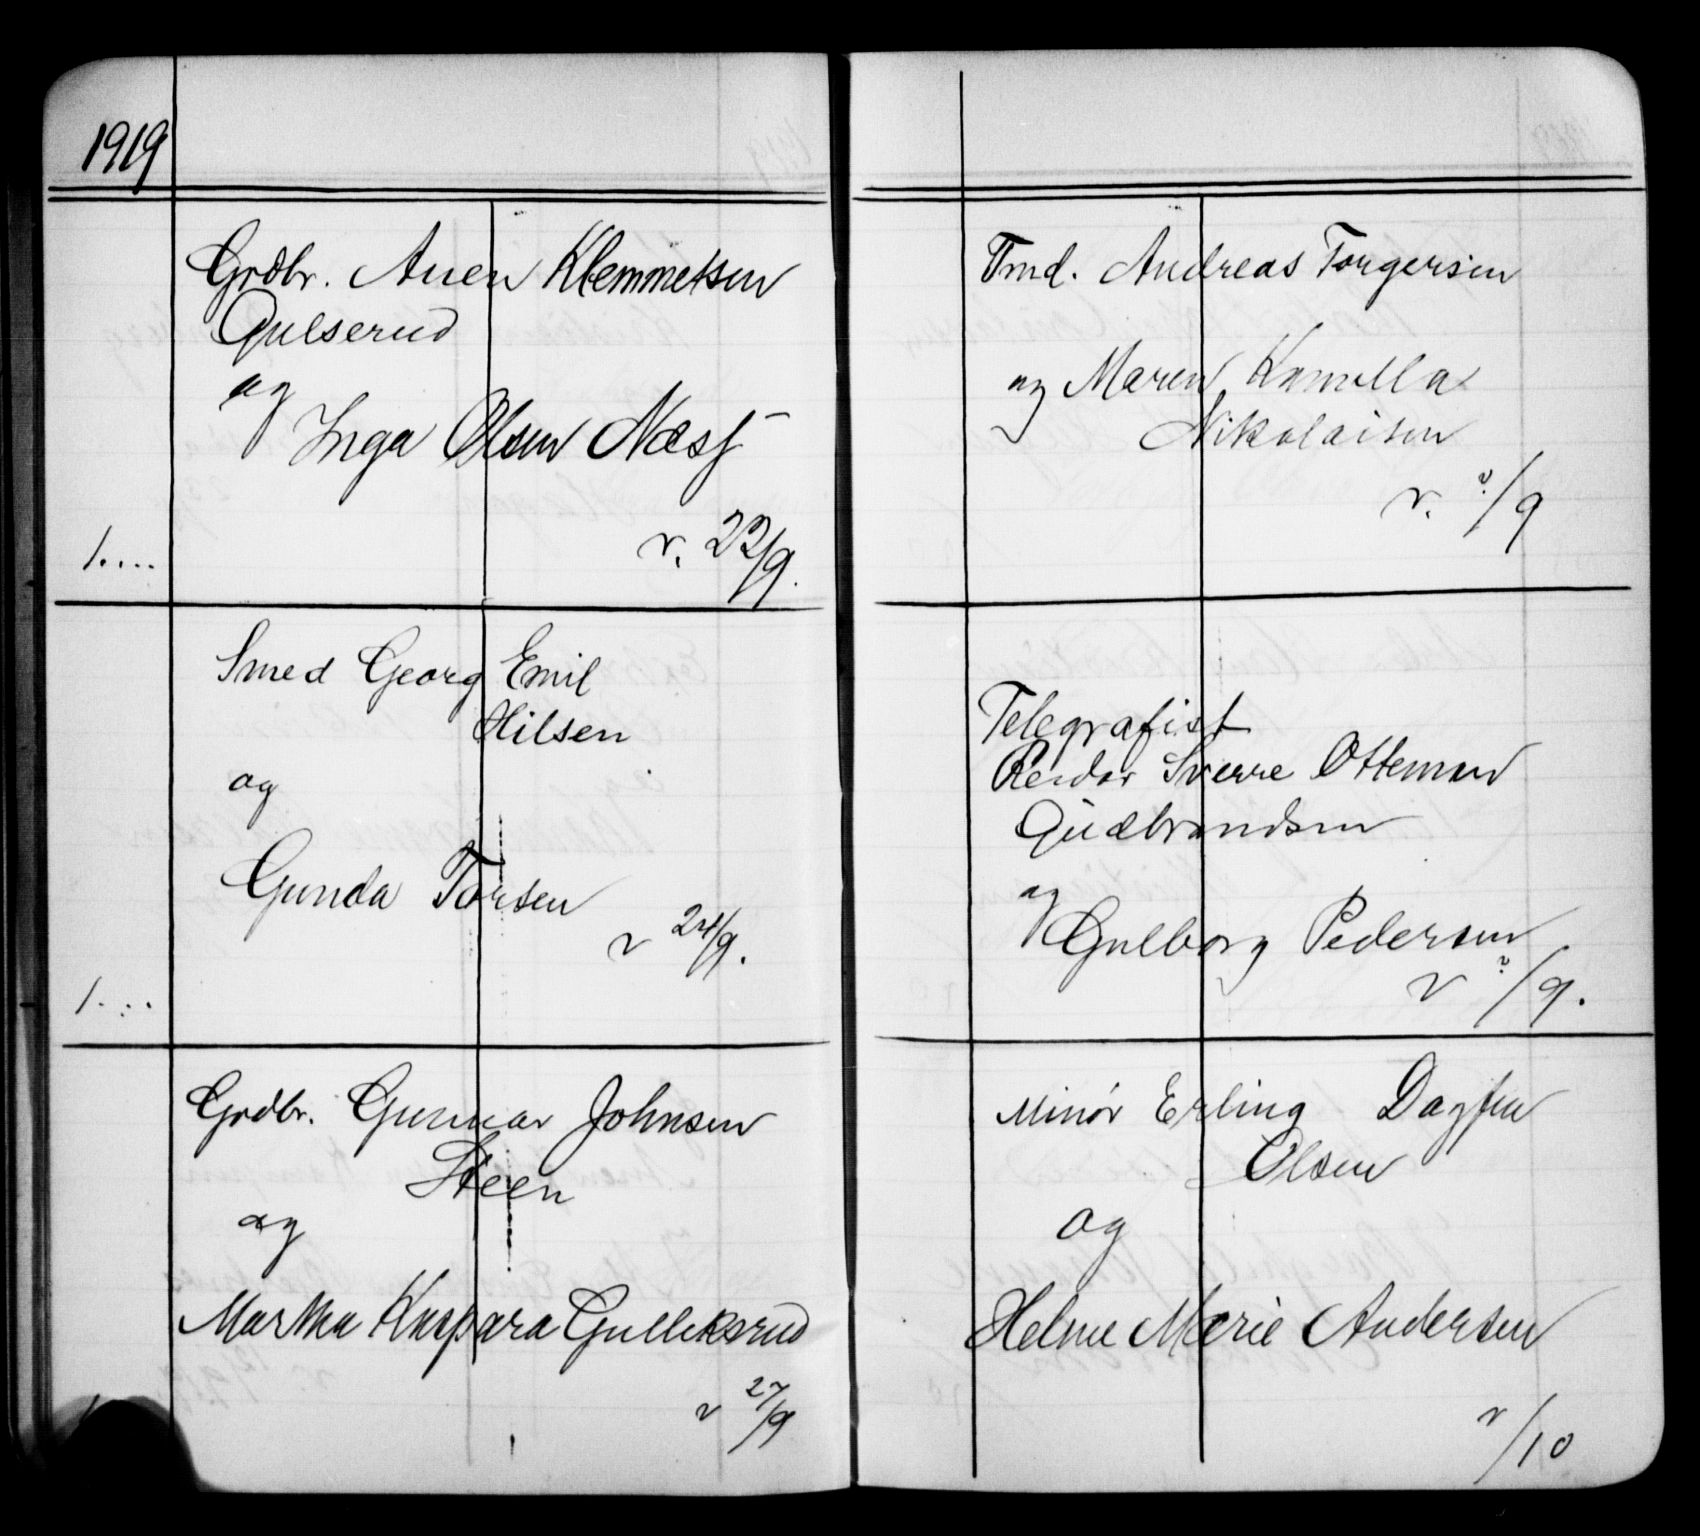 1919
Grdbr. Anen Klemmetsen
Gulserud
og
Inga Olsen Næss
v. 22/9.
1....
Smed Georg Emil
Hilsen
og
Gunda Torsen
v 24/9.
1....
Grdbr. Gunnar Johnsen
Steen
og
Martha Kaspara Gulliksrud
v 27/9
Fmd. Andreas Torgersen
og Maren Kamilla
Nikolaisen
v. ?/9
Telegrafist
Reidar Sverre Otteman
Gudbrandsen
og
Gulborg Pedersen
v ?/9.
Minør Erling Dagfin
Olsen
og
Helene Marie Andersen
/10